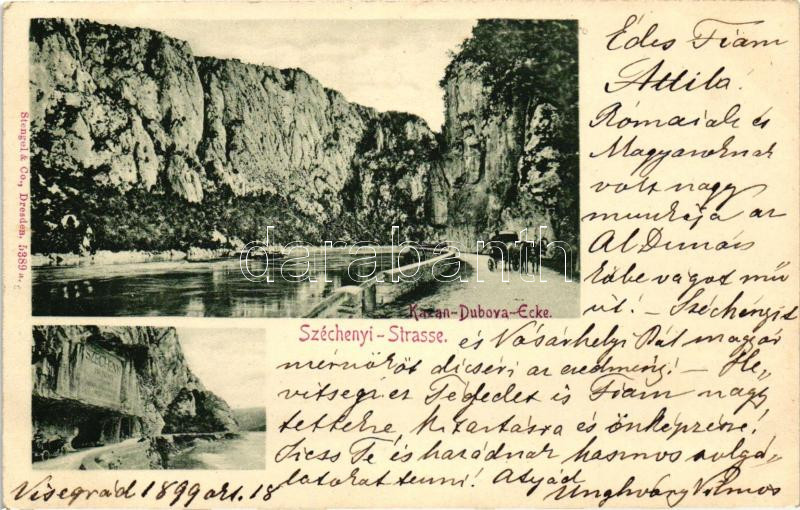 Stengel & Co., Dresden. 5389 a.
Kazan-Dubova-Ecke.
Széchenyi-Strasse.
SZÉCHENYI
darabanth.com
Édes Fiam
Attila!
Rómaiak és
Magyaroknak
volt nagy
munkája az
Al Dunás
kőbe vágot mű
út! – Széchényit
és Vásárhelyi Pál magyar
mérnököt dicséri az eredmény! – He-
vitsen ez Téged is Fiam nagy
tettekre, kitartásra és önképzésre!
Te és hazádnak hasznos szolgá-
latokat tenni! Atyád
Unghváry Vilmos
Visegrád 1899 okt. 18